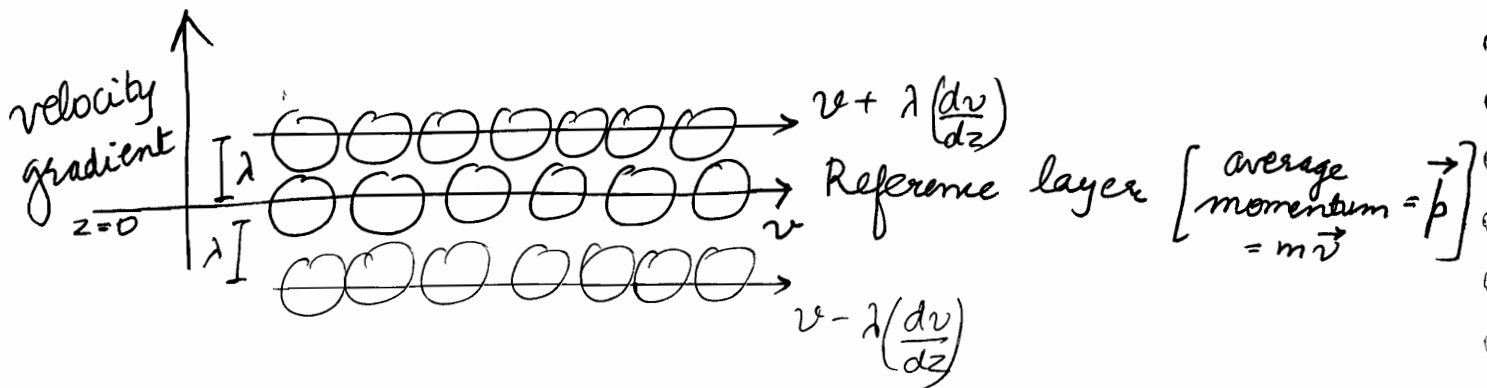 velocity
gradient
λ
z=0
λ
v + λ(dv/dz)
Reference layer [average momentum = p⃗ = mv⃗]
v
v - λ(dv/dz)